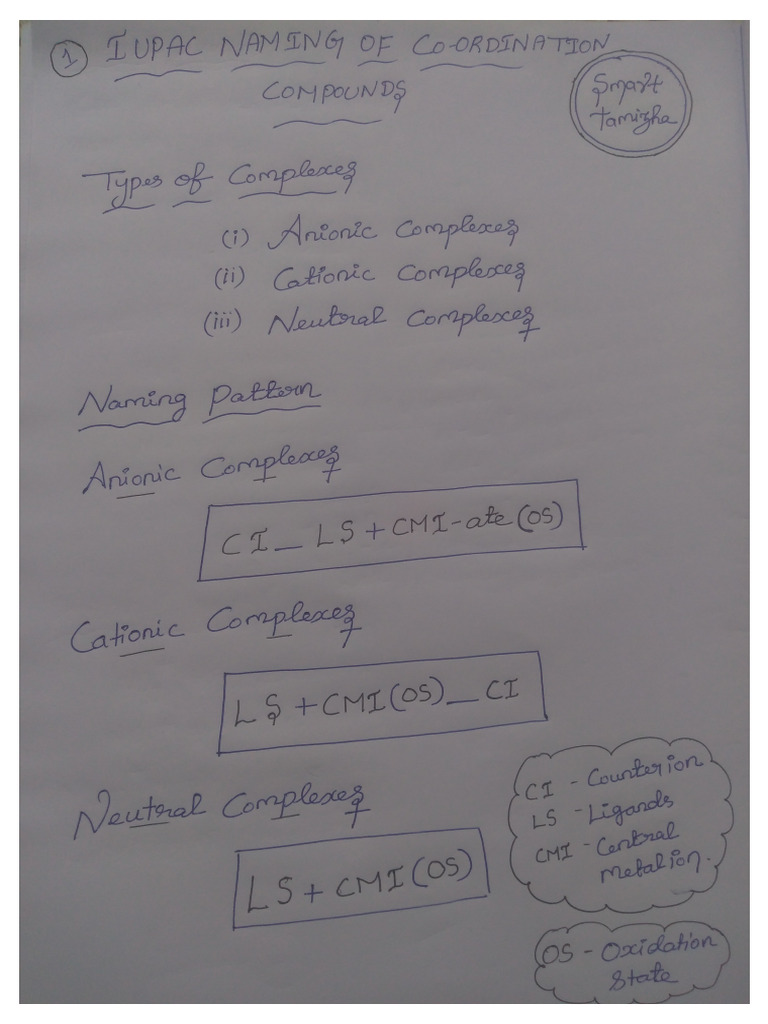 ① IUPAC NAMING OF CO-ORDINATION
COMPOUNDS
Smart
Tamizha
Types of Complexes
(i) Anionic Complexes
(ii) Cationic Complexes
(iii) Neutral Complexes
Naming Pattern
Anionic Complexes
CI _ LS + CMI-ate (OS)
Cationic Complexes
LS + CMI (OS) _ CI
Neutral Complexes
LS + CMI (OS)
CI - Counter ion
LS - Ligands
CMI - Central
metal ion.
OS - Oxidation
State